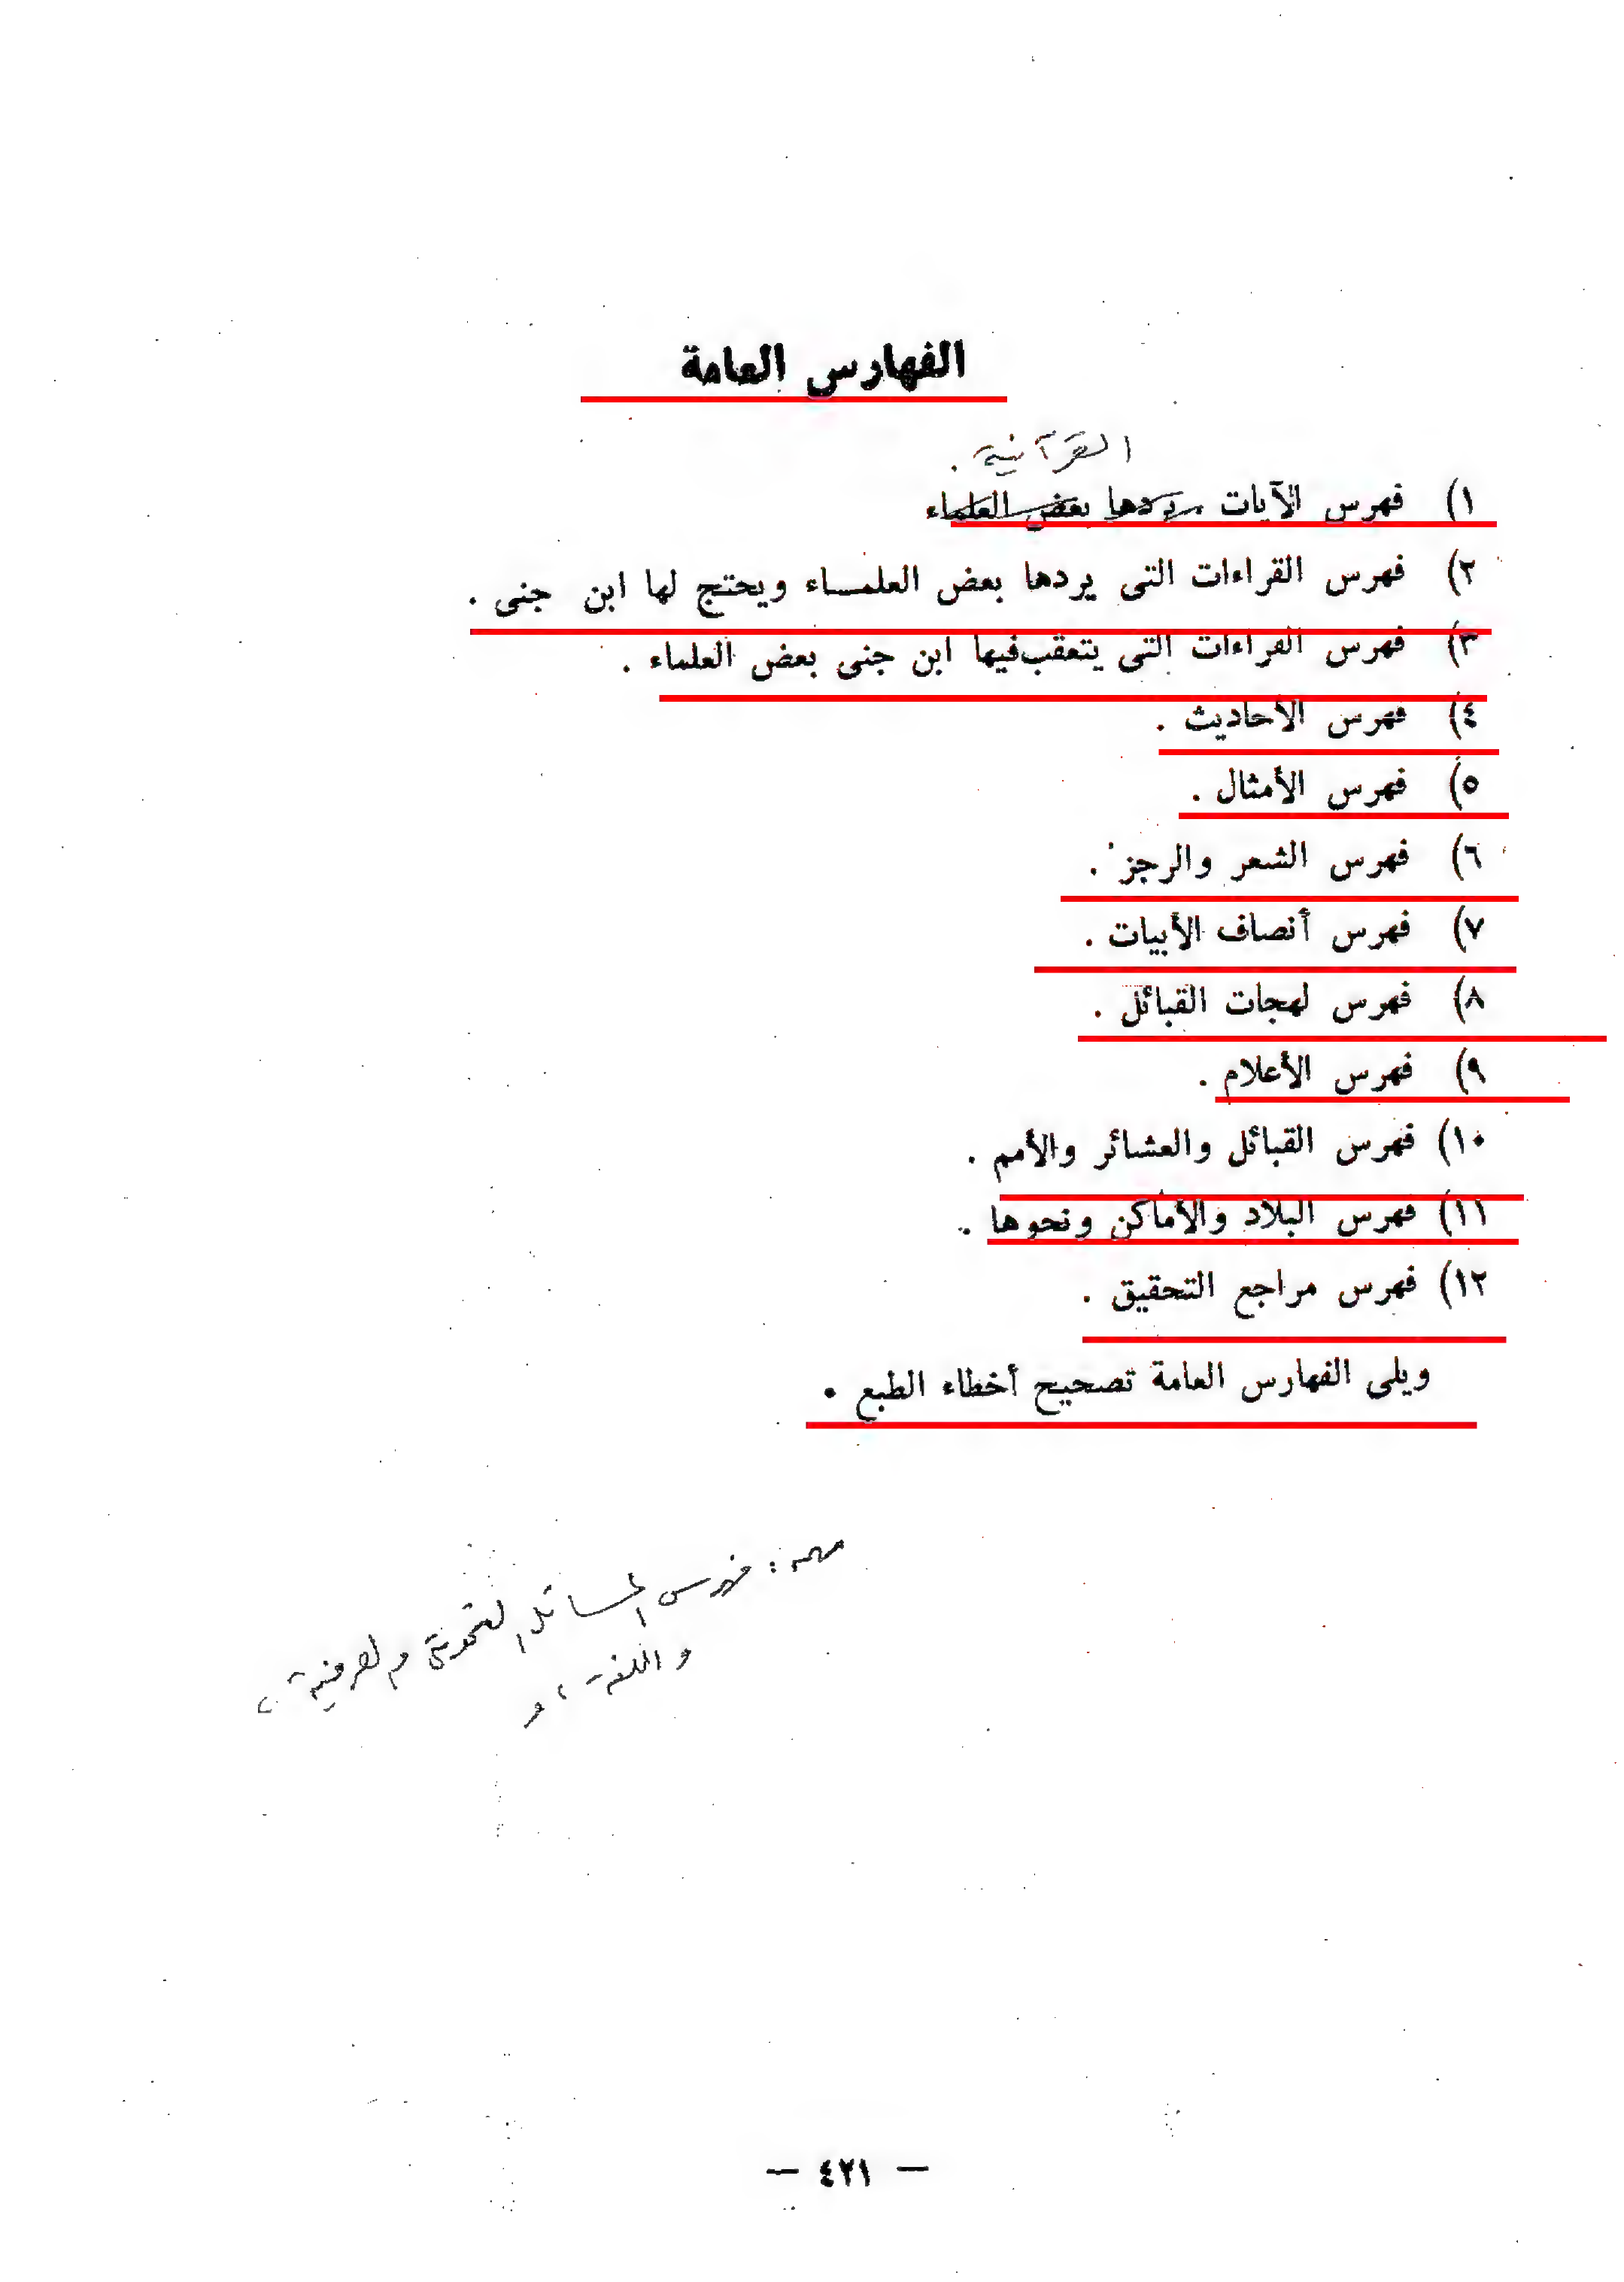 الفهارس العامة
القرآنية .
١) فهرس الآيات يردها بعض العلماء
٢) فهرس القراءات التى يردها بعض العلمساء ويحتج لها ابن جنى .
٣) فهرس القراءات التى يتعقب فيها ابن جنى بعض العلماء .
٤) فهرس الأحاديث .
٥) فهرس الأمثال .
٦) فهرس الشعر والرجز .
٧) فهرس أنصاف الأبيات .
٨) فهرس لهجات القبائل .
٩) فهرس الأعلام .
١٠) فهرس القبائل والعشائر والأمم .
١١) فهرس البلاد والأماكن ونحوها .
١٢) فهرس مراجع التحقيق .
ويلى الفهارس العامة تصحيح أخطاء الطبع .
: فهرس المسائل النحوية والصرفية
واللغة ، و
— ٤٢١ —